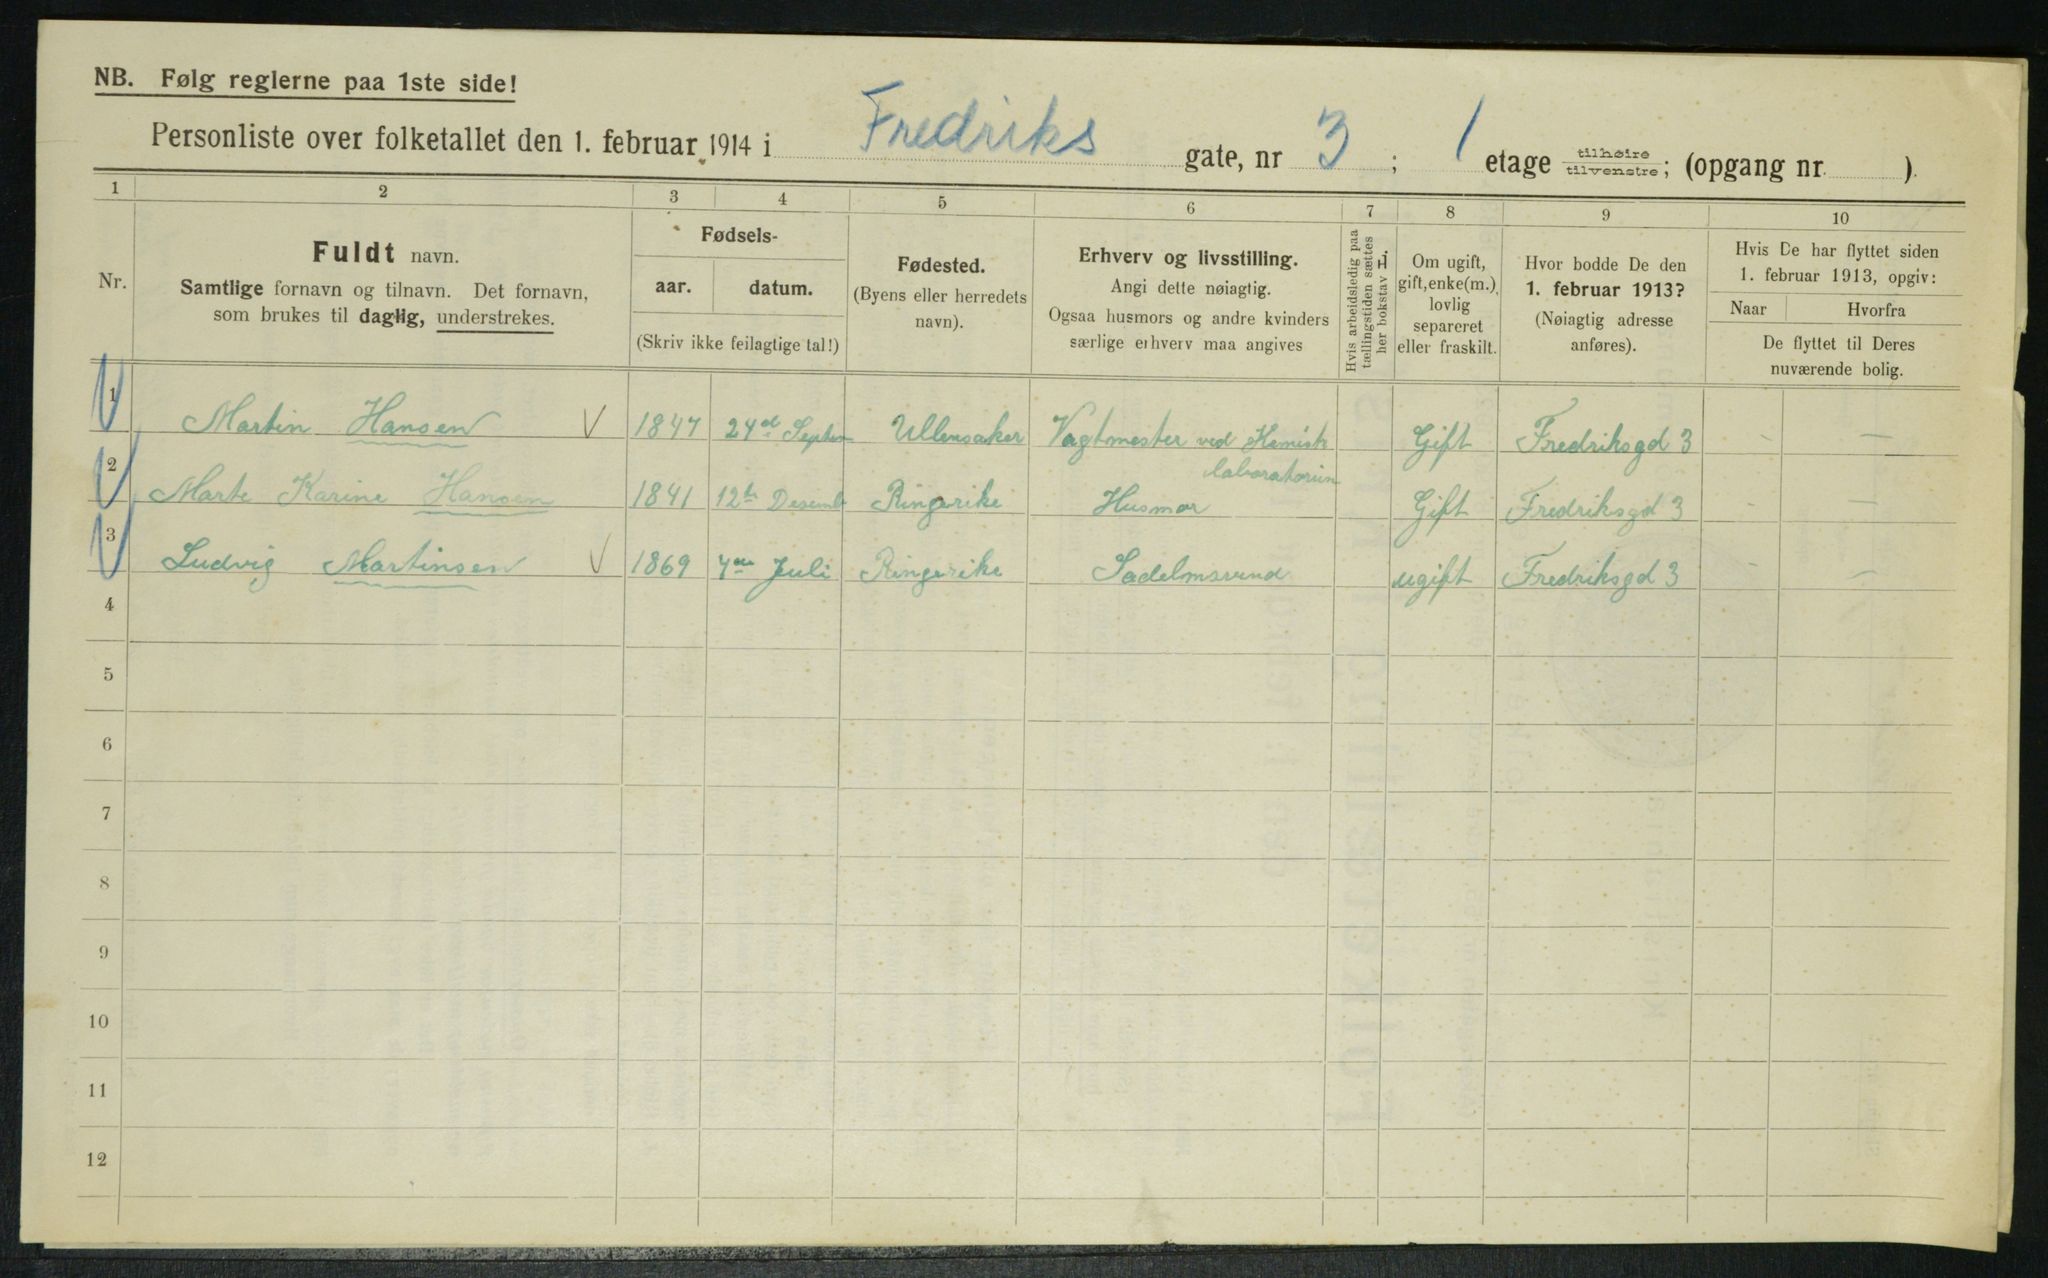 NB. Følg reglerne paa 1ste side!
Personliste over folketallet den 1. februar 1914 i Fredriks gate, nr 3; 1 etage tilhøire/tilvenstre; (opgang nr. ).
1 2 3 4 5 6 7 8 9 10
Nr.
Fuldt navn.
Samtlige fornavn og tilnavn. Det fornavn,
som brukes til daglig, understrekes.
Fødsels-
aar. datum.
(Skriv ikke feilagtige tal!)
Fødested.
(Byens eller herredets
navn).
Erhverv og livsstilling.
Angi dette nøiagtig.
Ogsaa husmors og andre kvinders
særlige erhverv maa angives
Hvis arbeidsledig paa
tællingstiden sættes
her bokstav L
Om ugift,
gift, enke(m.),
lovlig
separeret
eller fraskilt.
Hvor bodde De den
1. februar 1913?
(Nøiagtig adresse
anføres).
Hvis De har flyttet siden
1. februar 1913, opgiv:
Naar Hvorfra
De flyttet til Deres
nuværende bolig.
1 Martin Hansen V 1847 24d Septem Ullensaker Vagtmester ved Kemisk laboratorium Gift Fredriksgd 3 - —
2 Marte Karine Hansen 1841 12te Desemb Ringerike Husmor Gift Fredriksgd 3 - —
3 Ludvig Martinsen V 1869 4de Juli Ringerike Sadelmsvend ugift Fredriksgd 3 - —
4
5
6
7
8
9
10
11
12